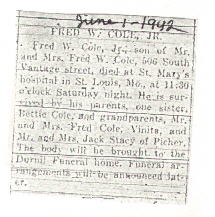 June 1-1942
FRED W. COLE, JR.
Fred W. Cole, Jr., son of Mr.
and Mrs. Fred W. Cole, 506 South
Vantage street, died at St. Mary's
hospital in St. Louis, Mo., at 11:30
o'clock Saturday night. He is sur-
vived by his parents, one sister,
Bettie Cole, and grandparents, Mr.
and Mrs. Fred Cole, Vinita, and
Mr. and Mrs. Jack Stacy of Picher.
The body will be brought to the
Funeral home. Funeral ar-
rangements will be announced lat-
er.